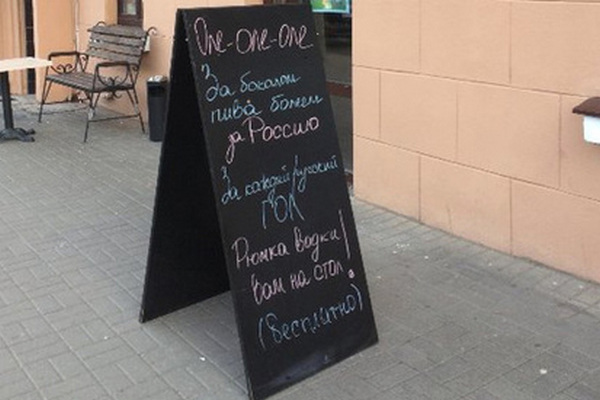 One-One-One
За бокалом
пива болеем
за Россию
За каждый русский
ГОЛ
Рюмка водки
вам на стол!
(Бесплатно)